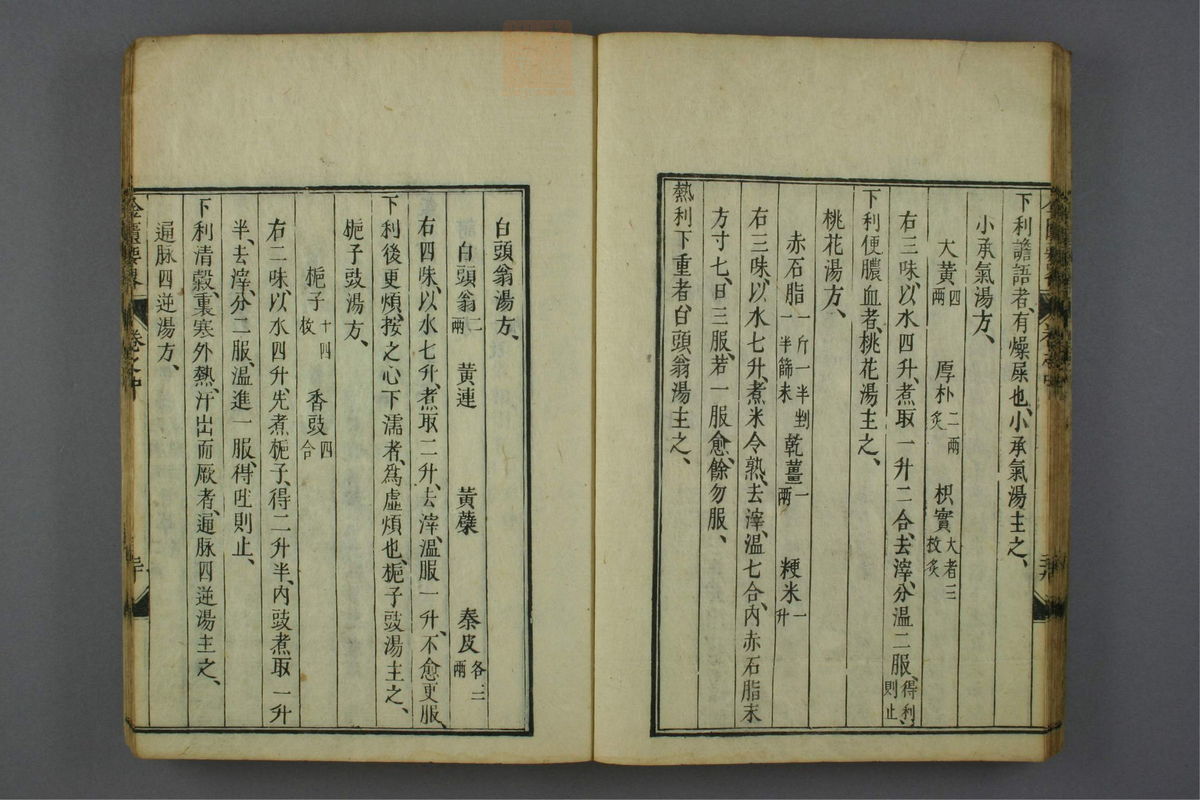 下利譫語者、有燥屎也、小承氣湯主之、
小承氣湯方、
大黃四兩 厚朴二兩炙 枳實大者三枚炙
右三味、以水四升、煮取一升二合、去滓、分溫二服、得利則止、
下利便膿血者、桃花湯主之、
桃花湯方、
赤石脂一斤一半剉一半篩末 乾薑一兩 粳米一升
右三味、以水七升、煮米令熟、去滓、溫七合、內赤石脂末
方寸匕、日三服、若一服愈、餘勿服、
熱利下重者、白頭翁湯主之、
白頭翁湯方、
白頭翁二兩 黃連 黃蘗 秦皮各三兩
右四味、以水七升、煮取二升、去滓、溫服一升、不愈更服、
下利後更煩、按之心下濡者、為虛煩也、梔子豉湯主之、
梔子豉湯方、
梔子十四枚 香豉四合
右二味、以水四升、先煮梔子、得二升半、內豉煮取一升
半、去滓、分二服、溫進一服、得吐則止、
下利清穀、裏寒外熱、汗出而厥者、通脉四逆湯主之、
通脉四逆湯方、
金匱要畧 卷之中 三十